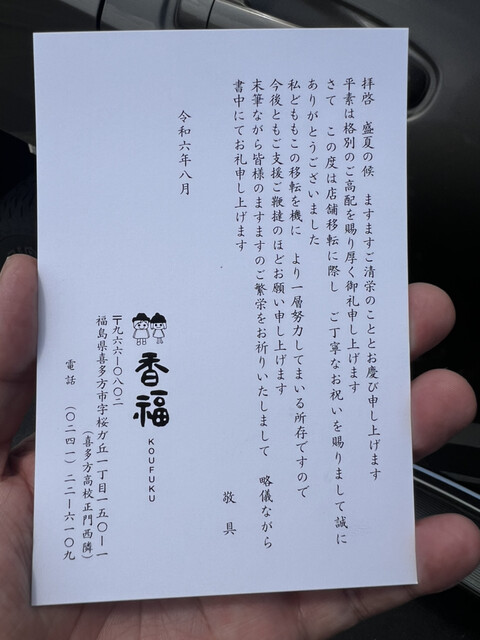 拝啓　盛夏の候　ますますご清栄のこととお慶び申し上げます
平素は格別のご高配を賜り厚く御礼申し上げます
さて　この度は店舗移転に際し　ご丁寧なお祝いを賜りまして誠に
ありがとうございました
私どももこの移転を機に　より一層努力してまいる所存ですので
今後ともご支援ご鞭撻のほどお願い申し上げます
末筆ながら皆様のますますのご繁栄をお祈りいたしまして　略儀ながら
書中にてお礼申し上げます
敬具
令和六年八月
香福
KOUFUKU
〒九六六―〇八〇二
福島県喜多方市字桜ガ丘一丁目一五〇―一
（喜多方高校正門西隣）
電話　（〇二四一）二二―六一〇九